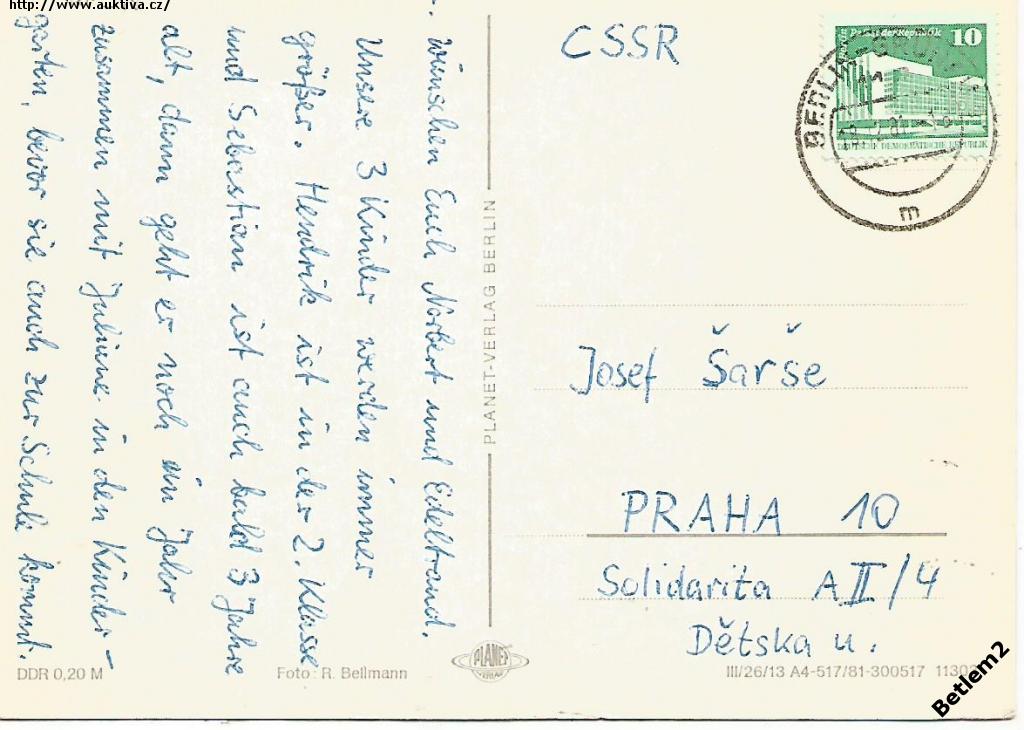 http://www.auktiva.cz/
wünschen Euch Norbert und Edeltraud.
Unsere 3 Kinder werden immer
größer. Hendrik ist in der 2. Klasse
und Sebastian ist auch bald 3 Jahre
alt, dann geht er noch ein Jahr
zusammen mit Juliane in den Kinder-
garten, bevor sie auch zur Schule kommt.
PLANET-VERLAG BERLIN
DDR 0,20 M
Foto: R. Bellmann
PLANET
VERLAG
CSSR
Palast der Republik 10
DEUTSCHE DEMOKRATISCHE REPUBLIK
BERLIN
m
Josef Šarše
PRAHA 10
Solidarita A II/4
Dětska u.
III/26/13 A4-517/81-300517
Betlem2